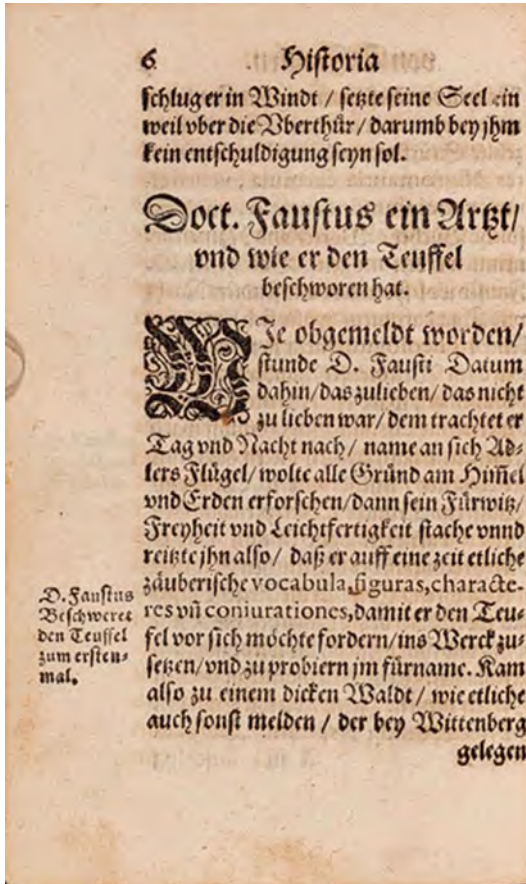 6 Historia
schlug er in Windt / setzte seine Seel ein
weil vber die Vberthür / darumb bey jhm
kein entschuldigung seyn sol.
Doct. Faustus ein Artzt /
vnd wie er den Teuffel
beschworen hat.
WJe obgemeldt worden /
stunde D. Fausti Datum
dahin / das zulieben / das nicht
zu lieben war / dem trachtet er
Tag vnd Nacht nach / name an sich Ad⸗
lers Flügel / wolte alle Gründ am Him̃el
vnd Erden erforschen / dann sein Fürwitz /
Freyheit vnd Leichtfertigkeit stache vnnd
reitzte jhn also / daß er auff eine zeit etliche
zäuberische vocabula, figuras, characte-
res vñ coniurationes, damit er den Teu⸗
fel vor sich möchte fordern / ins Werck zu⸗
setzen / vnd zu probiern jm fürname. Kam
also zu einem dicken Waldt / wie etliche
auch sonst melden / der bey Wittenberg
gelegen
D. Faustus
Beschweret
den Teuffel
zum ersten⸗
mal.